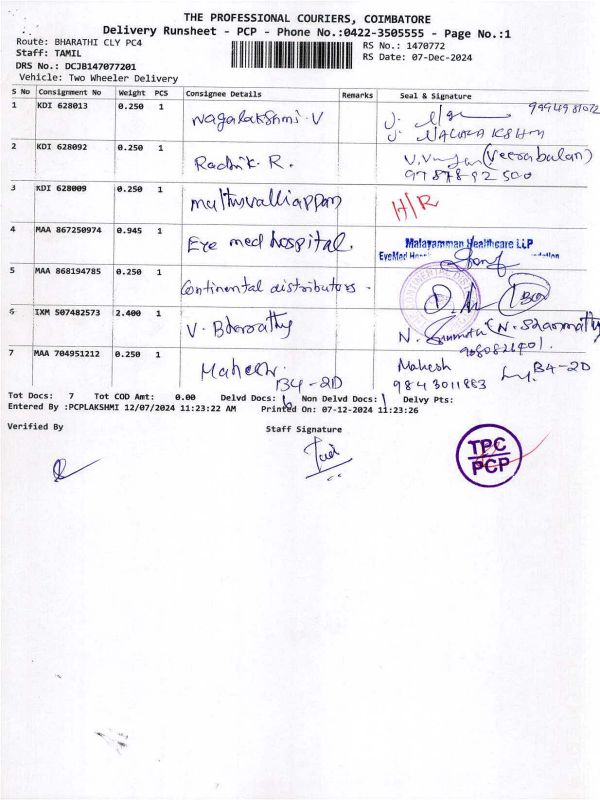 THE PROFESSIONAL COURIERS, COIMBATORE
Delivery Runsheet - PCP - Phone No.:0422-3505555 - Page No.:1
Route: BHARATHI CLY PC4
RS No.: 1470772
Staff: TAMIL
RS Date: 07-Dec-2024
DRS No.: DCJB147077201
Vehicle: Two Wheeler Delivery
S No Consignment No Weight PCS Consignee Details Remarks Seal & Signature
1 KDI 628013 0.250 1 Nagalakshmi. V
2 KDI 628092 0.250 1 R. (Veerabalan)
97878-92500
3 KDI 628009 0.250 1 muthuvalliappan H/R
4 MAA 867250974 0.945 1 Eye med hospital. Malayamman Healthcare LLP
5 MAA 868194785 0.250 1 Continental distributors -
6 IXM 507482573 2.400 1 V. N.
7 MAA 704951212 0.250 1 B4-2D Mahesh B4-2D
9843011883
Tot Docs: 7 Tot COD Amt: 0.00 Delvd Docs: 6 Non Delvd Docs: 1 Delvy Pts:
Entered By :PCPLAKSHMI 12/07/2024 11:23:22 AM Printed On: 07-12-2024 11:23:26
Verified By Staff Signature
TPC
PCP